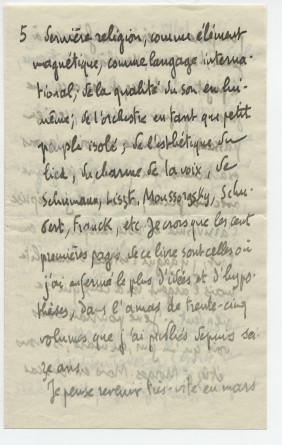 5 dernière religion, comme élément
magnétique, comme langage interna-
tional, de la qualité du son en lui-
même, de l'orchestre en tant que petit
peuple isolé, de l'esthétique du
lied, du charme de la voix, de
Schumann, Liszt, Moussorgsky, Schu-
bert, Franck, etc. Je crois que les cent
premières pages de ce livre sont celles où
j'ai enfermé le plus d'idées et d'hypo-
thèses, dans l'amas de trente-cinq
volumes que j'ai publiés depuis sei-
ze ans.
Je pense revenir très-vite en mars